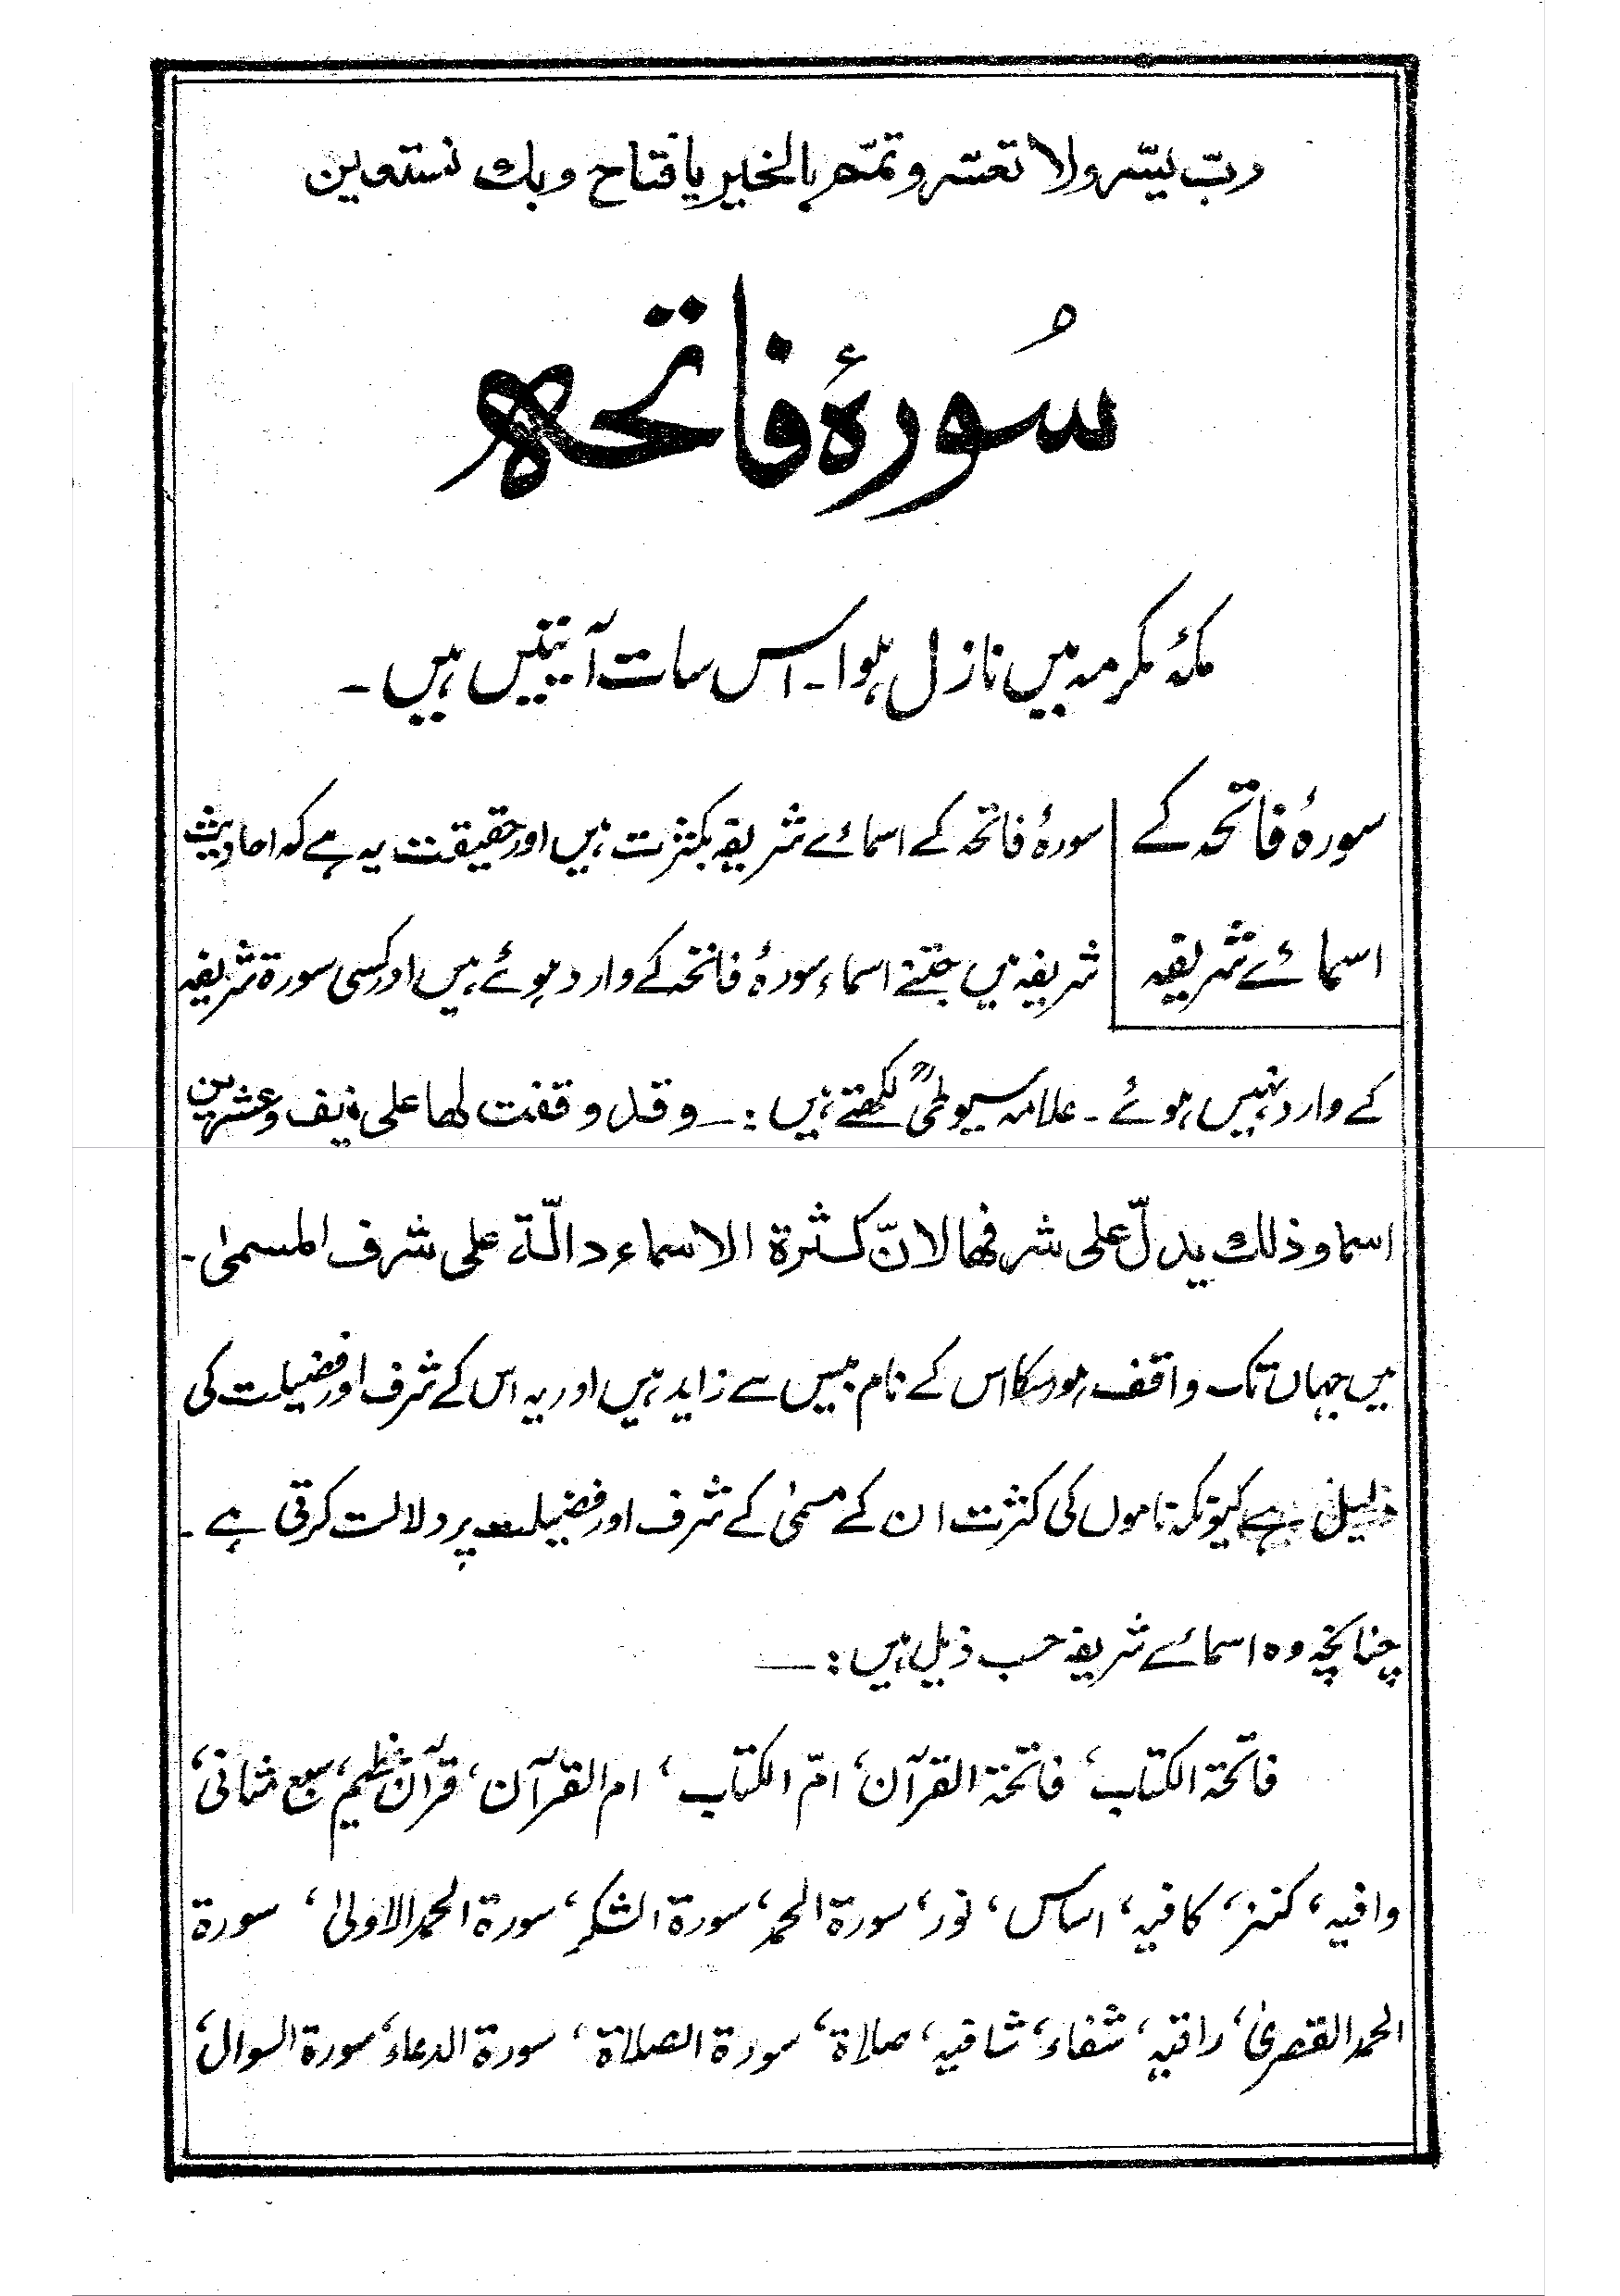 ربّ يسّر ولا تعسّر وتمّم بالخير يا فتاح وبك نستعين
سُورۂ فاتحہ
مکۂ مکرمہ میں نازل ہوا۔ اس سات آیتیں ہیں۔
سورۂ فاتحہ کے
اسمائے شریفہ
سورۂ فاتحہ کے اسمائے شریفہ بکثرت ہیں اور حقیقت یہ ہے کہ احادیث
شریفہ میں جتنے اسماء سورۂ فاتحہ کے وارد ہوئے ہیں اور کسی سورۃ شریفہ
کے وارد نہیں ہوئے۔ علامہ سیوطیؒ لکھتے ہیں :— وقد وقفت لها على نيف وعشرين
اسما وذلك يدلّ على شرفها لانّ كثرة الاسماء دالّة على شرف المسمىٰ۔
میں جہاں تک واقف ہو سکا اس کے نام بیس سے زاید ہیں اور یہ اس کے شرف اور فضیلت کی
دلیل ہے کیونکہ ناموں کی کثرت ان کے مسمیٰ کے شرف اور فضیلت پر دلالت کرتی ہے۔
چنانچہ وہ اسمائے شریفہ حسب ذیل ہیں :—
فاتحۃ الکتاب، فاتحۃ القرآن، امّ الکتاب، ام القرآن، قرآن عظیم، سبع مثانی،
وافیہ، کنز، کافیہ، اساس، نور، سورۃ الحمد، سورۃ الشکر، سورۃ الحمد الاولیٰ، سورۃ
الحمد القصریٰ، راقیہ، شفاء، شافیہ، صلاۃ، سورۃ الصلاۃ، سورۃ الدعاء، سورۃ السوال،